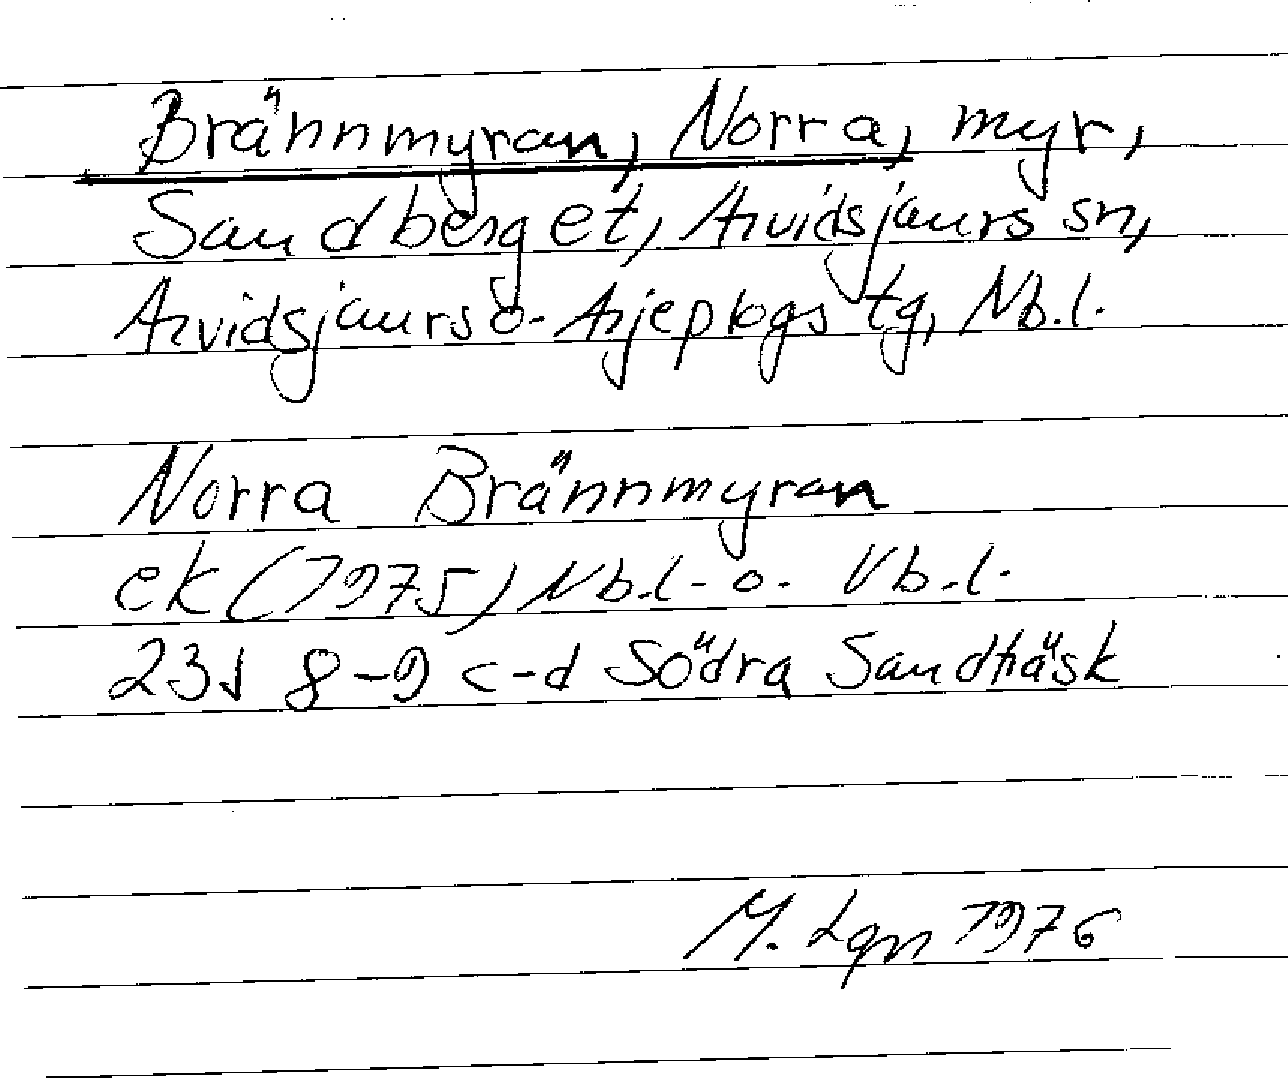 Brännmyran, Norra, myr,
Sandberget, Arvidsjaurs sn,
Arvidsjaurs o. Arjeplogs tg, Nb.l.
Norra Brännmyran
ek (1975) Nb.l. o. Vb.l.
23J 8-9 c-d Södra Sandträsk
M. Lgn 1976